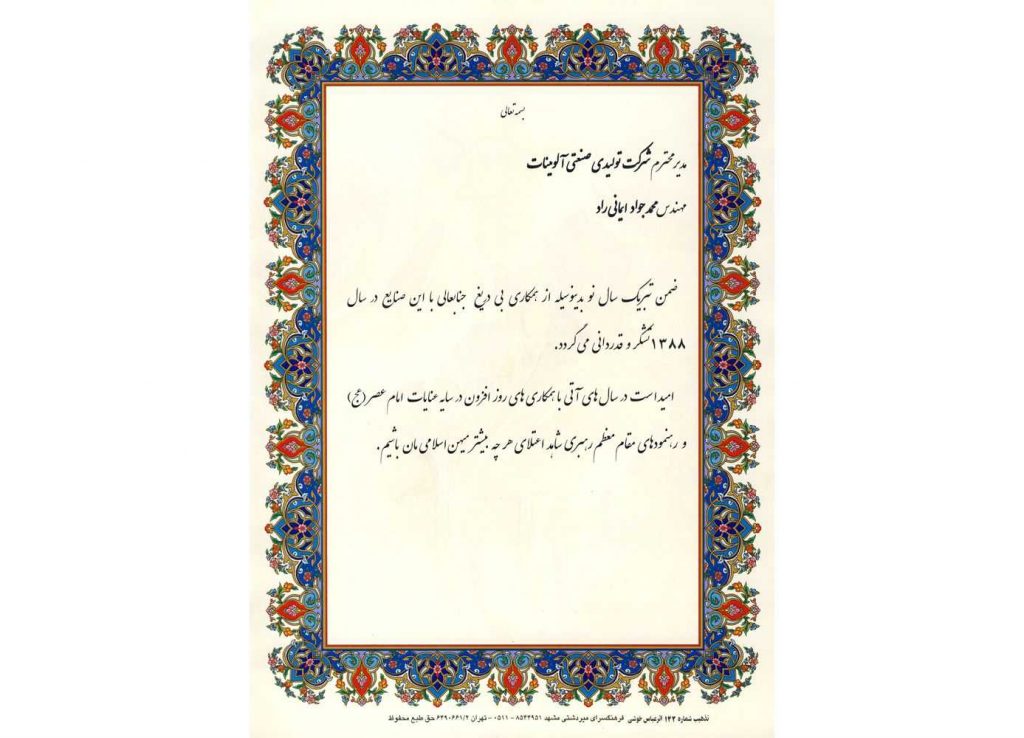 بسمه تعالی
مدیر محترم شرکت تولیدی صنعتی آلومینات
مهندس محمد جواد ایمانی راد
ضمن تبریک سال نو بدینوسیله از همکاری بی دریغ جنابعالی با این صنایع در سال
۱۳۸۸ تشکر و قدردانی می گردد.
امید است در سال های آتی با همکاری های روز افزون در سایه عنایات امام عصر (عج)
و رهنمودهای مقام معظم رهبری شاهد اعتلای هر چه بیشتر میهن اسلامی مان باشیم.
تذهیب شماره ۱۴۳ اثر عباس طوسی فرهنگسرای میردشتی مشهد ۸۵۴۴۹۵۱ - ۰۵۱۱ - تهران ۶۴۹۰۶۶۱/۲ حق طبع محفوظ